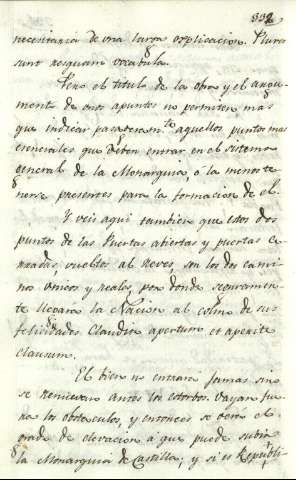 332
necesitaria de una larga explicacion. Plura
sunt negocia quam vocabula.
Pero el titulo de la obra y el argu-
mento de estos apuntos no permiten mas
que indicar pasaderam.te aquellos puntos mas
esenciales que deben entrar en el sistema
general de la Monarquia, ó la menos te
nerse presentes para la formacion de el.
Y veis aqui tambien que estos dos
puntos de las Puertas abiertas y puertas ce
rradas, vueltos al reves, son los dos cami
nos unicos y reales, por donde seguramen-
te llegara la Nacion al colmo de sus
felicidades Claudite apertum et aperite
clausum.
El bien no entrará jamas sino
se remueven antes los estorbos. Vayan fue
ra los obstaculos, y entonces se verá el
grado de elevacion á que puede subir
la Monarquia de Castilla; y si es Republi-